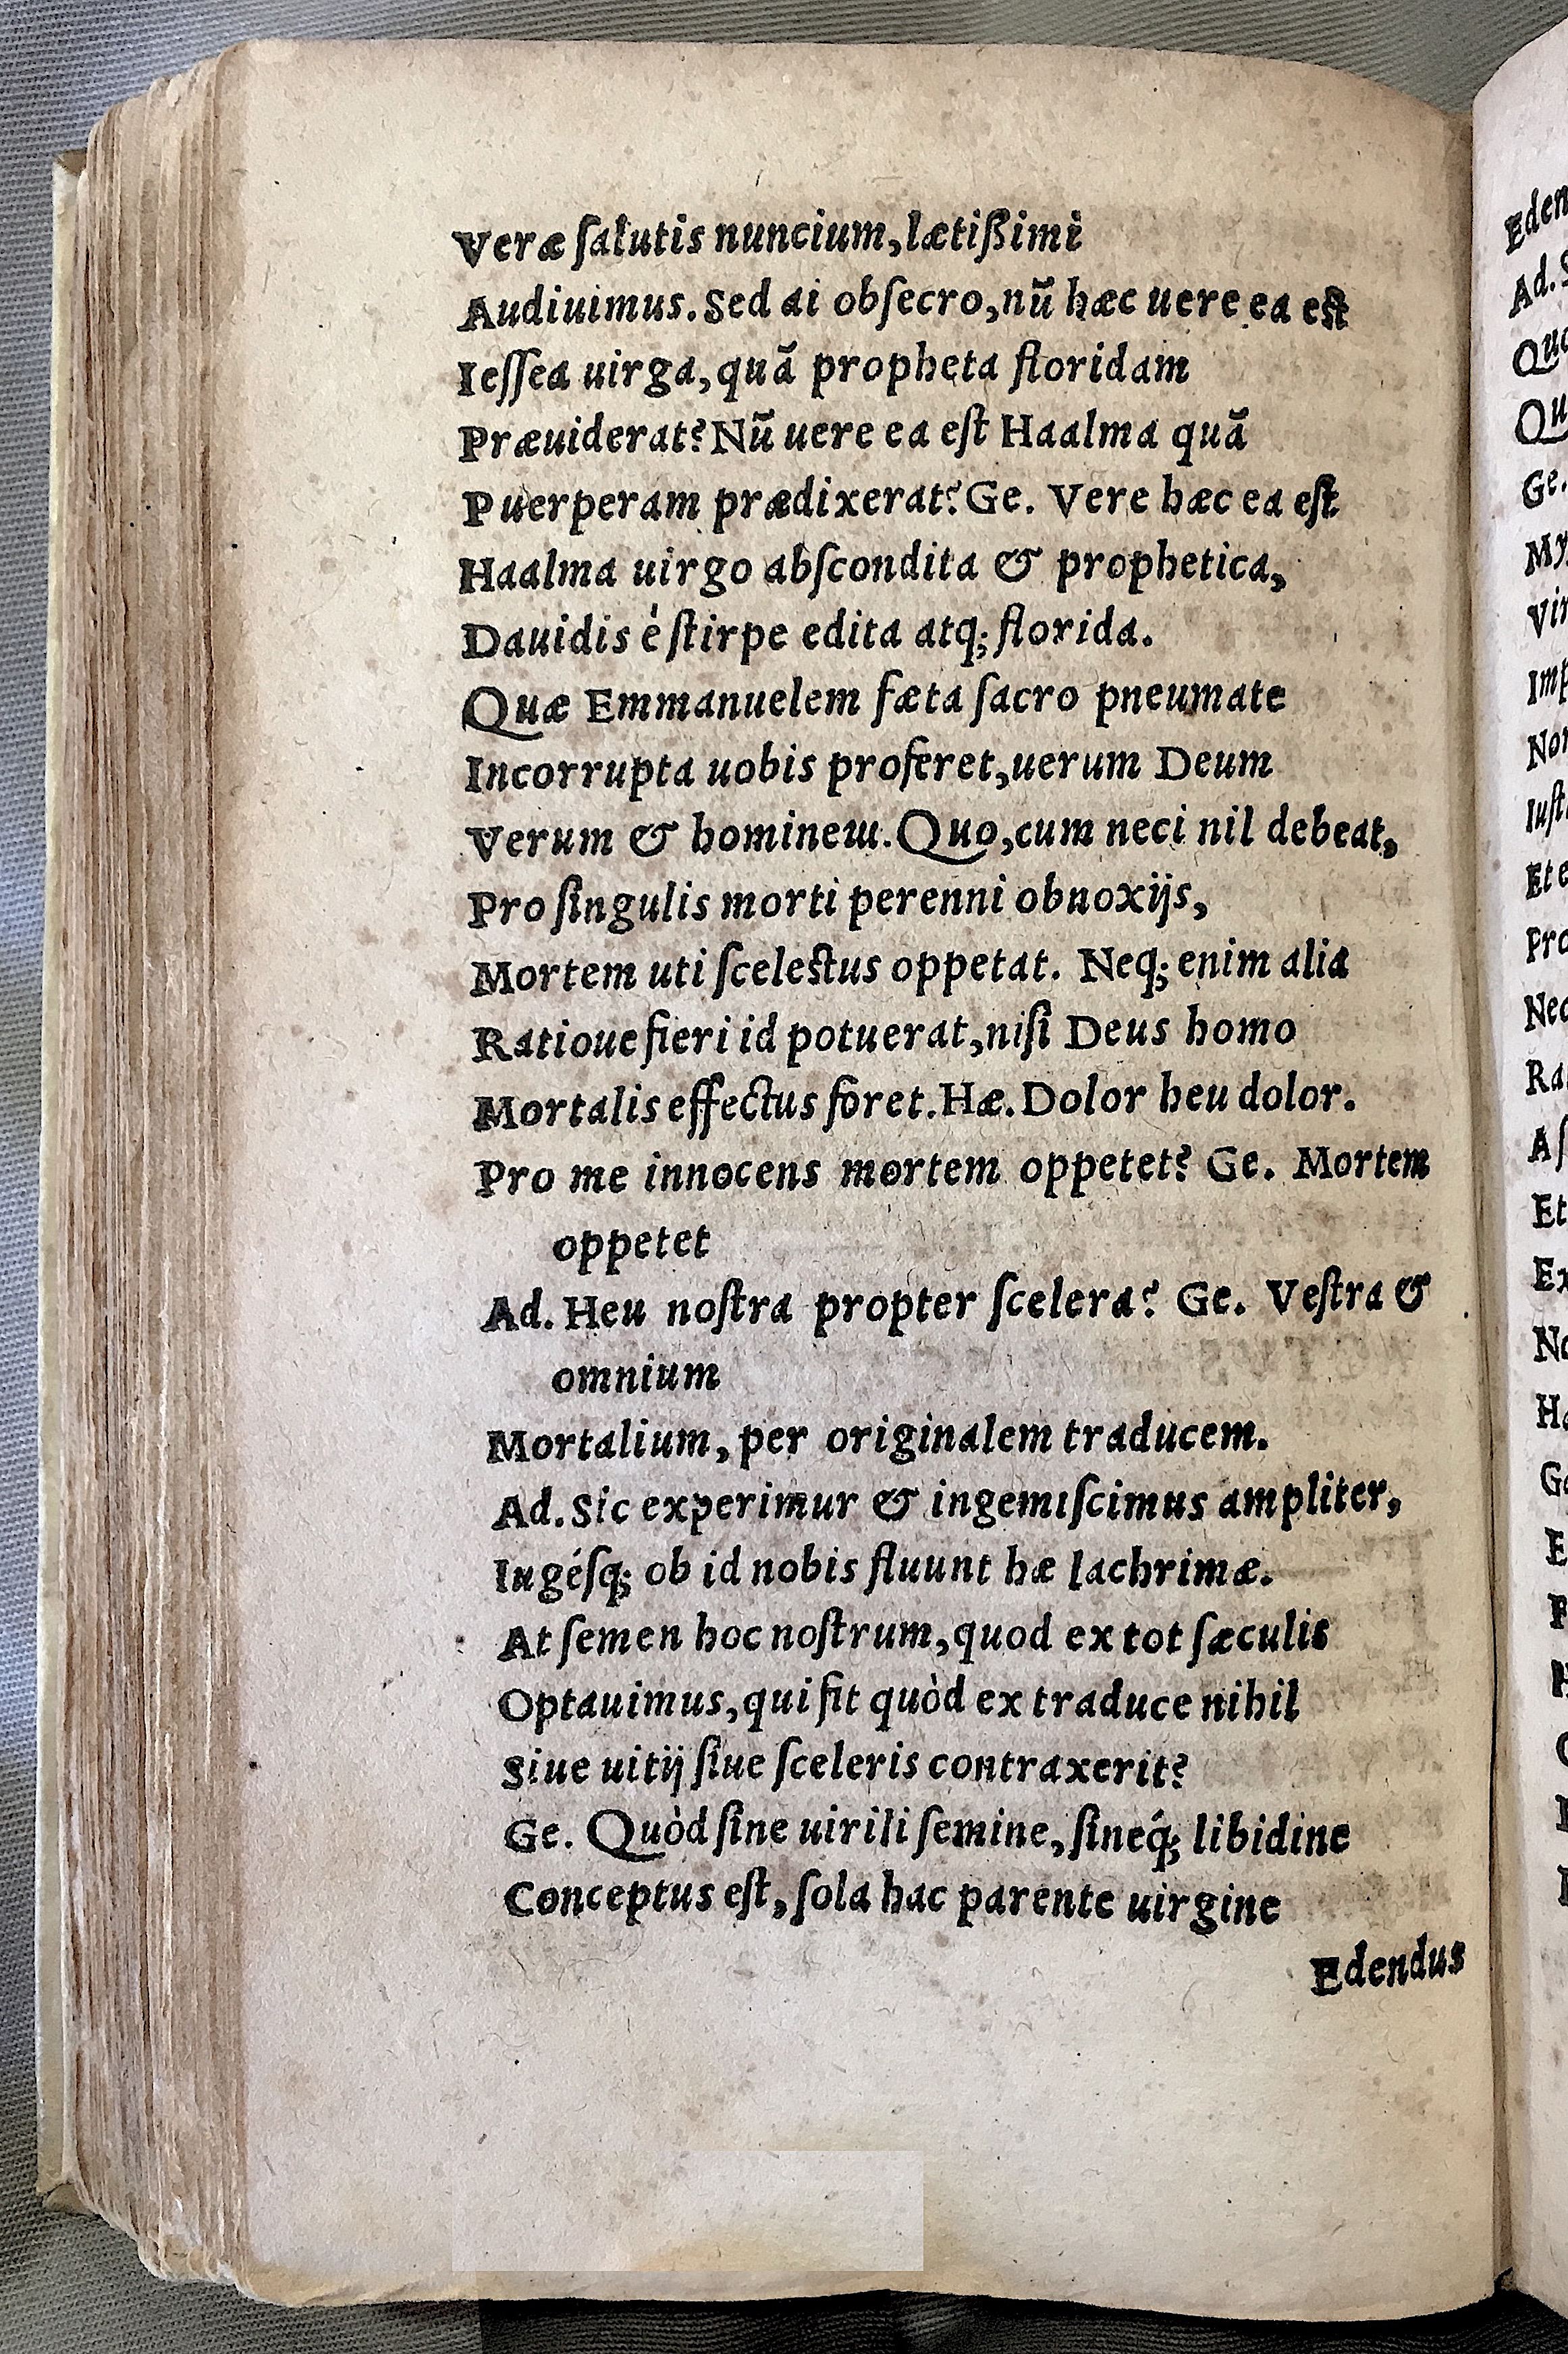 Veræ ſalutis nuncium, lætißimi
Audiuimus. Sed ai obſecro, nũ hæc uere ea eſt
Ieſſea uirga, quã propheta floridam
Præuiderat? Nũ uere ea eſt Haalma quã
Puerperam prædixerat? Ge. Vere hæc ea eſt
Haalma uirgo abſcondita & prophetica,
Dauidis è ſtirpe edita atq; florida.
Quæ Emmanuelem fæta ſacro pneumate
Incorrupta uobis proferet, uerum Deum
Verum & hominem. Quo, cum neci nil debeat,
Pro ſingulis morti perenni obnoxijs,
Mortem uti ſceleſtus oppetat. Neq; enim alia
Ratioue fieri id potuerat, niſi Deus homo
Mortalis effectus foret. Hæ. Dolor heu dolor.
Pro me innocens mortem oppetet? Ge. Mortem
oppetet
Ad. Heu noſtra propter ſcelera? Ge. Veſtra &
omnium
Mortalium, per originalem traducem.
Ad. Sic experimur & ingemiſcimus ampliter,
Ingésq; ob id nobis fluunt hæ lachrimæ.
At ſemen hoc noſtrum, quod ex tot ſæculis
Optauimus, qui fit quòd ex traduce nihil
Siue uitij ſiue ſceleris contraxerit?
Ge. Quòd ſine uirili ſemine, ſineq́; libidine
Conceptus eſt, ſola hac parente uirgine
Edendus
Eden
Ad. S
Quo
Qu
Ge.
My
Vir
Imp
Non
Iuſt
Et e
Pro
Nec
Ra
Aſ
Et
Ex
No
Ha
Ga
E